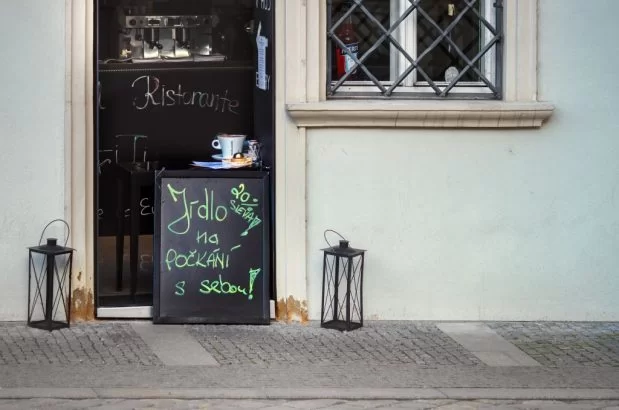 Ristorante
Jídlo
20.-
SLEVA!
na
POČKÁNÍ
s sebou!